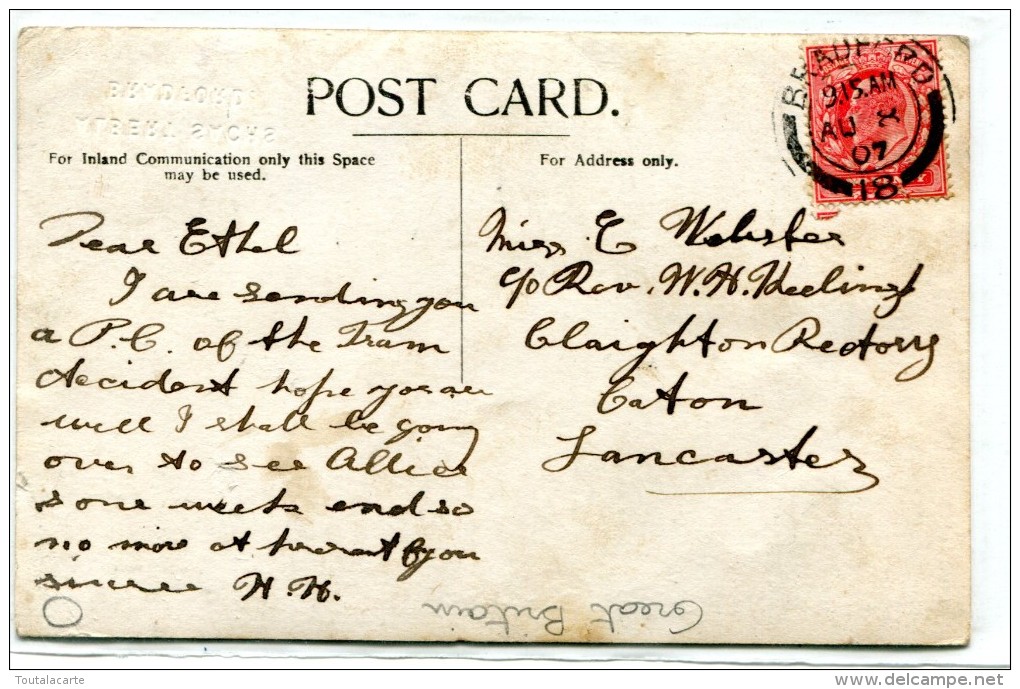 BRADFORD
ALBERT SACHS
POST CARD.
For Inland Communication only this Space
may be used.
For Address only.
BRADFORD
9.15.AM
AU 8
07
18
Dear Ethel
I are sending you
a P.C. of the Tram
Accident hope you are
well I shall be going
over to see Allice
some week end so
no more at present from you
sincere H.H.
Miss E Webster
c/o Rev. W. H. Keeling
Claighton Rectory
Caton
Lancaster
Great Britain
Toutalacarte
www.delcampe.net